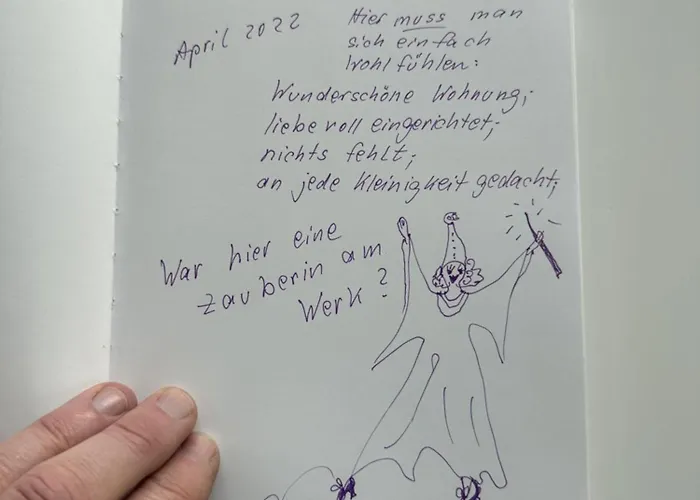 April 2022
Hier muss man
sich einfach
wohl fühlen:
Wunderschöne Wohnung;
liebevoll eingerichtet;
nichts fehlt;
an jede Kleinigkeit gedacht;
War hier eine
Zauberin am
Werk?